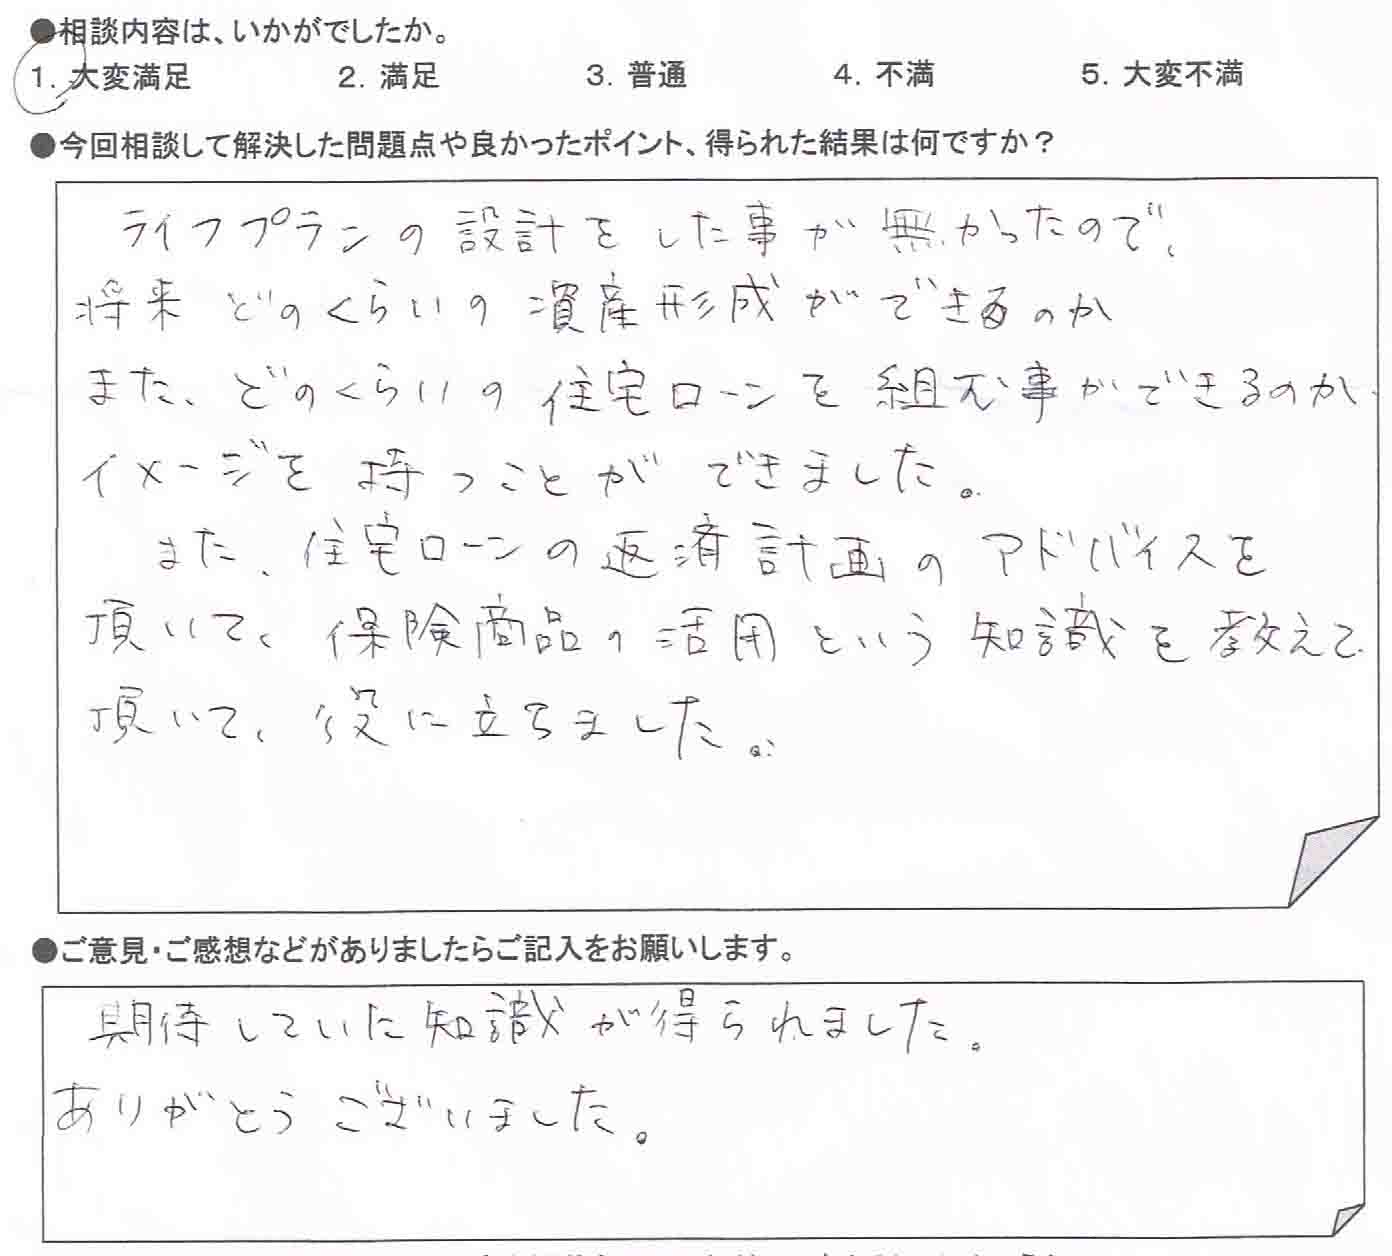 ●相談内容は、いかがでしたか。
1. 大変満足 2. 満足 3. 普通 4. 不満 5. 大変不満
●今回相談して解決した問題点や良かったポイント、得られた結果は何ですか？
ライフプランの設計をした事が無かったので、
将来どのくらいの資産形成ができるのか
また、どのくらいの住宅ローンを組む事ができるのか、
イメージを持つことができました。
また、住宅ローンの返済計画のアドバイスを
頂いて、保険商品の活用という知識を教えて
頂いて、役に立ちました。
●ご意見・ご感想などがありましたらご記入をお願いします。
期待していた知識が得られました。
ありがとうございました。